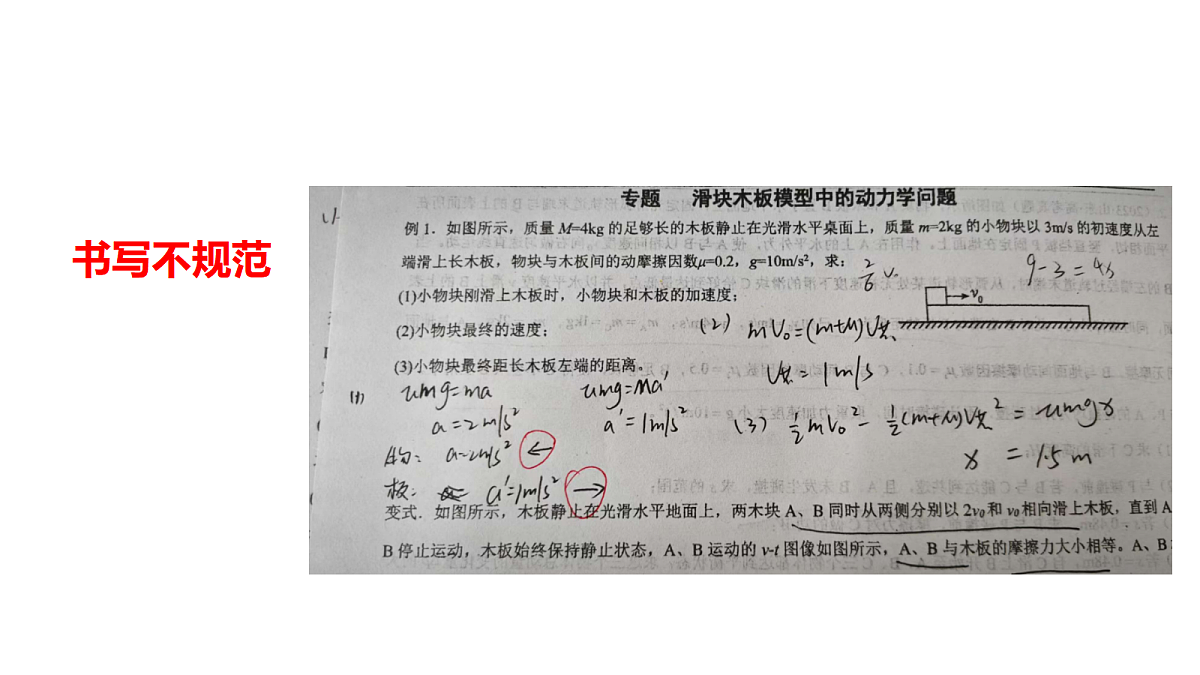 书写不规范
专题 滑块木板模型中的动力学问题
例1．如图所示，质量 M=4kg 的足够长的木板静止在光滑水平桌面上，质量 m=2kg 的小物块以 3m/s 的初速度从左
端滑上长木板，物块与木板间的动摩擦因数μ=0.2，g=10m/s²，求：
9-3=4s
(1)小物块刚滑上木板时，小物块和木板的加速度；
v₀
(2)小物块最终的速度；
(2) mV₀=(m+M)V共
(3)小物块最终距长木板左端的距离。
V共=1m/s
(1) umg=ma umg=Ma′
a=2m/s² a′=1m/s²
(3) ½mV₀²-½(m+M)V共²=umgx
物： a=2m/s² ←
x=1.5m
板： a′=1m/s² →
变式．如图所示，木板静止在光滑水平地面上，两木块 A、B 同时从两侧分别以 2v₀和 v₀相向滑上木板，直到 A
B 停止运动，木板始终保持静止状态，A、B 运动的 v-t 图像如图所示，A、B 与木板的摩擦力大小相等。A、B